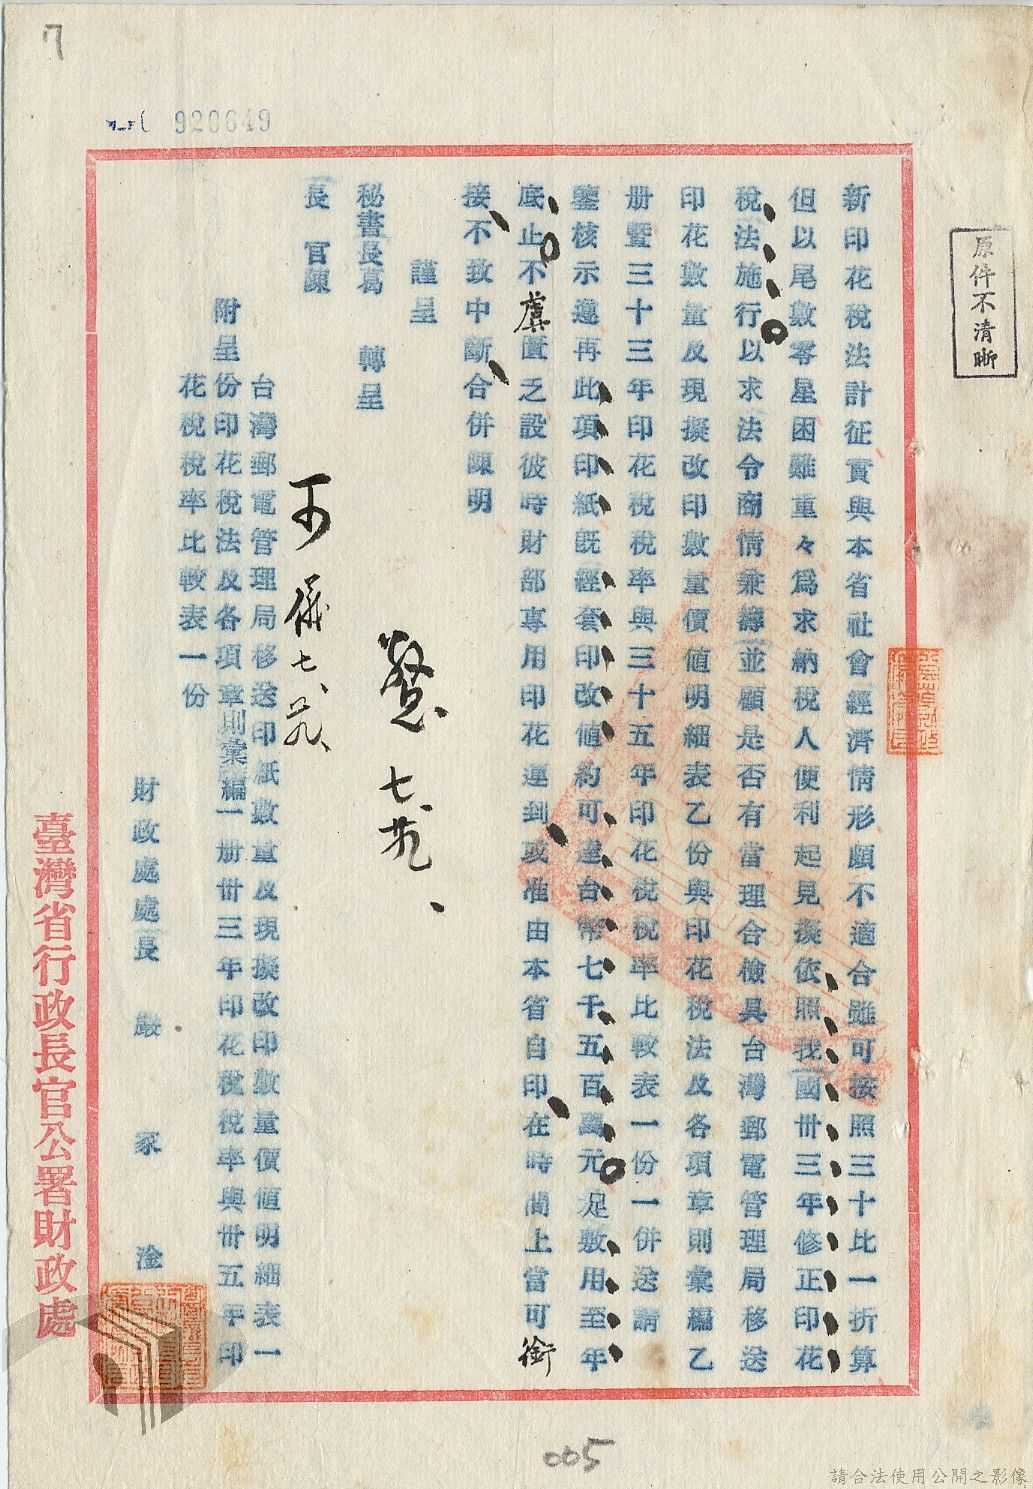 7
920649
原件不清晰
新印花稅法計征實與本省社會經濟情形頗不適合雖可按照三十比一折算
但以尾數零星困難重々為求納稅人便利起見擬依照我國卅三年修正印花
稅法施行以求法令商情兼籌並顧是否有當理合檢具台灣郵電管理局移送
印花數量及現擬改印數量價值明細表乙份與印花稅法及各項章則彙編乙
册暨三十三年印花稅稅率與三十五年印花稅稅率比較表一份一併送請
鑒核示遵再此項印紙既經套印改値約可達台幣七千五百萬元足敷用至年
底止不虞匱乏設彼時財部專用印花運到或准由本省自印在時間上當可銜
接不致中斷合併陳明
謹呈
秘書長葛 轉呈
長官陳
可 儀 七、
附呈
台灣郵電管理局移送印紙數量及現擬改印數量價值明細表一
份印花稅法及各項章則彙編一册卅三年印花稅稅率與卅五年印
花稅稅率比較表一份
財政處處長 嚴家淦
臺灣省行政長官公署財政處
005
請合法使用公開之影像